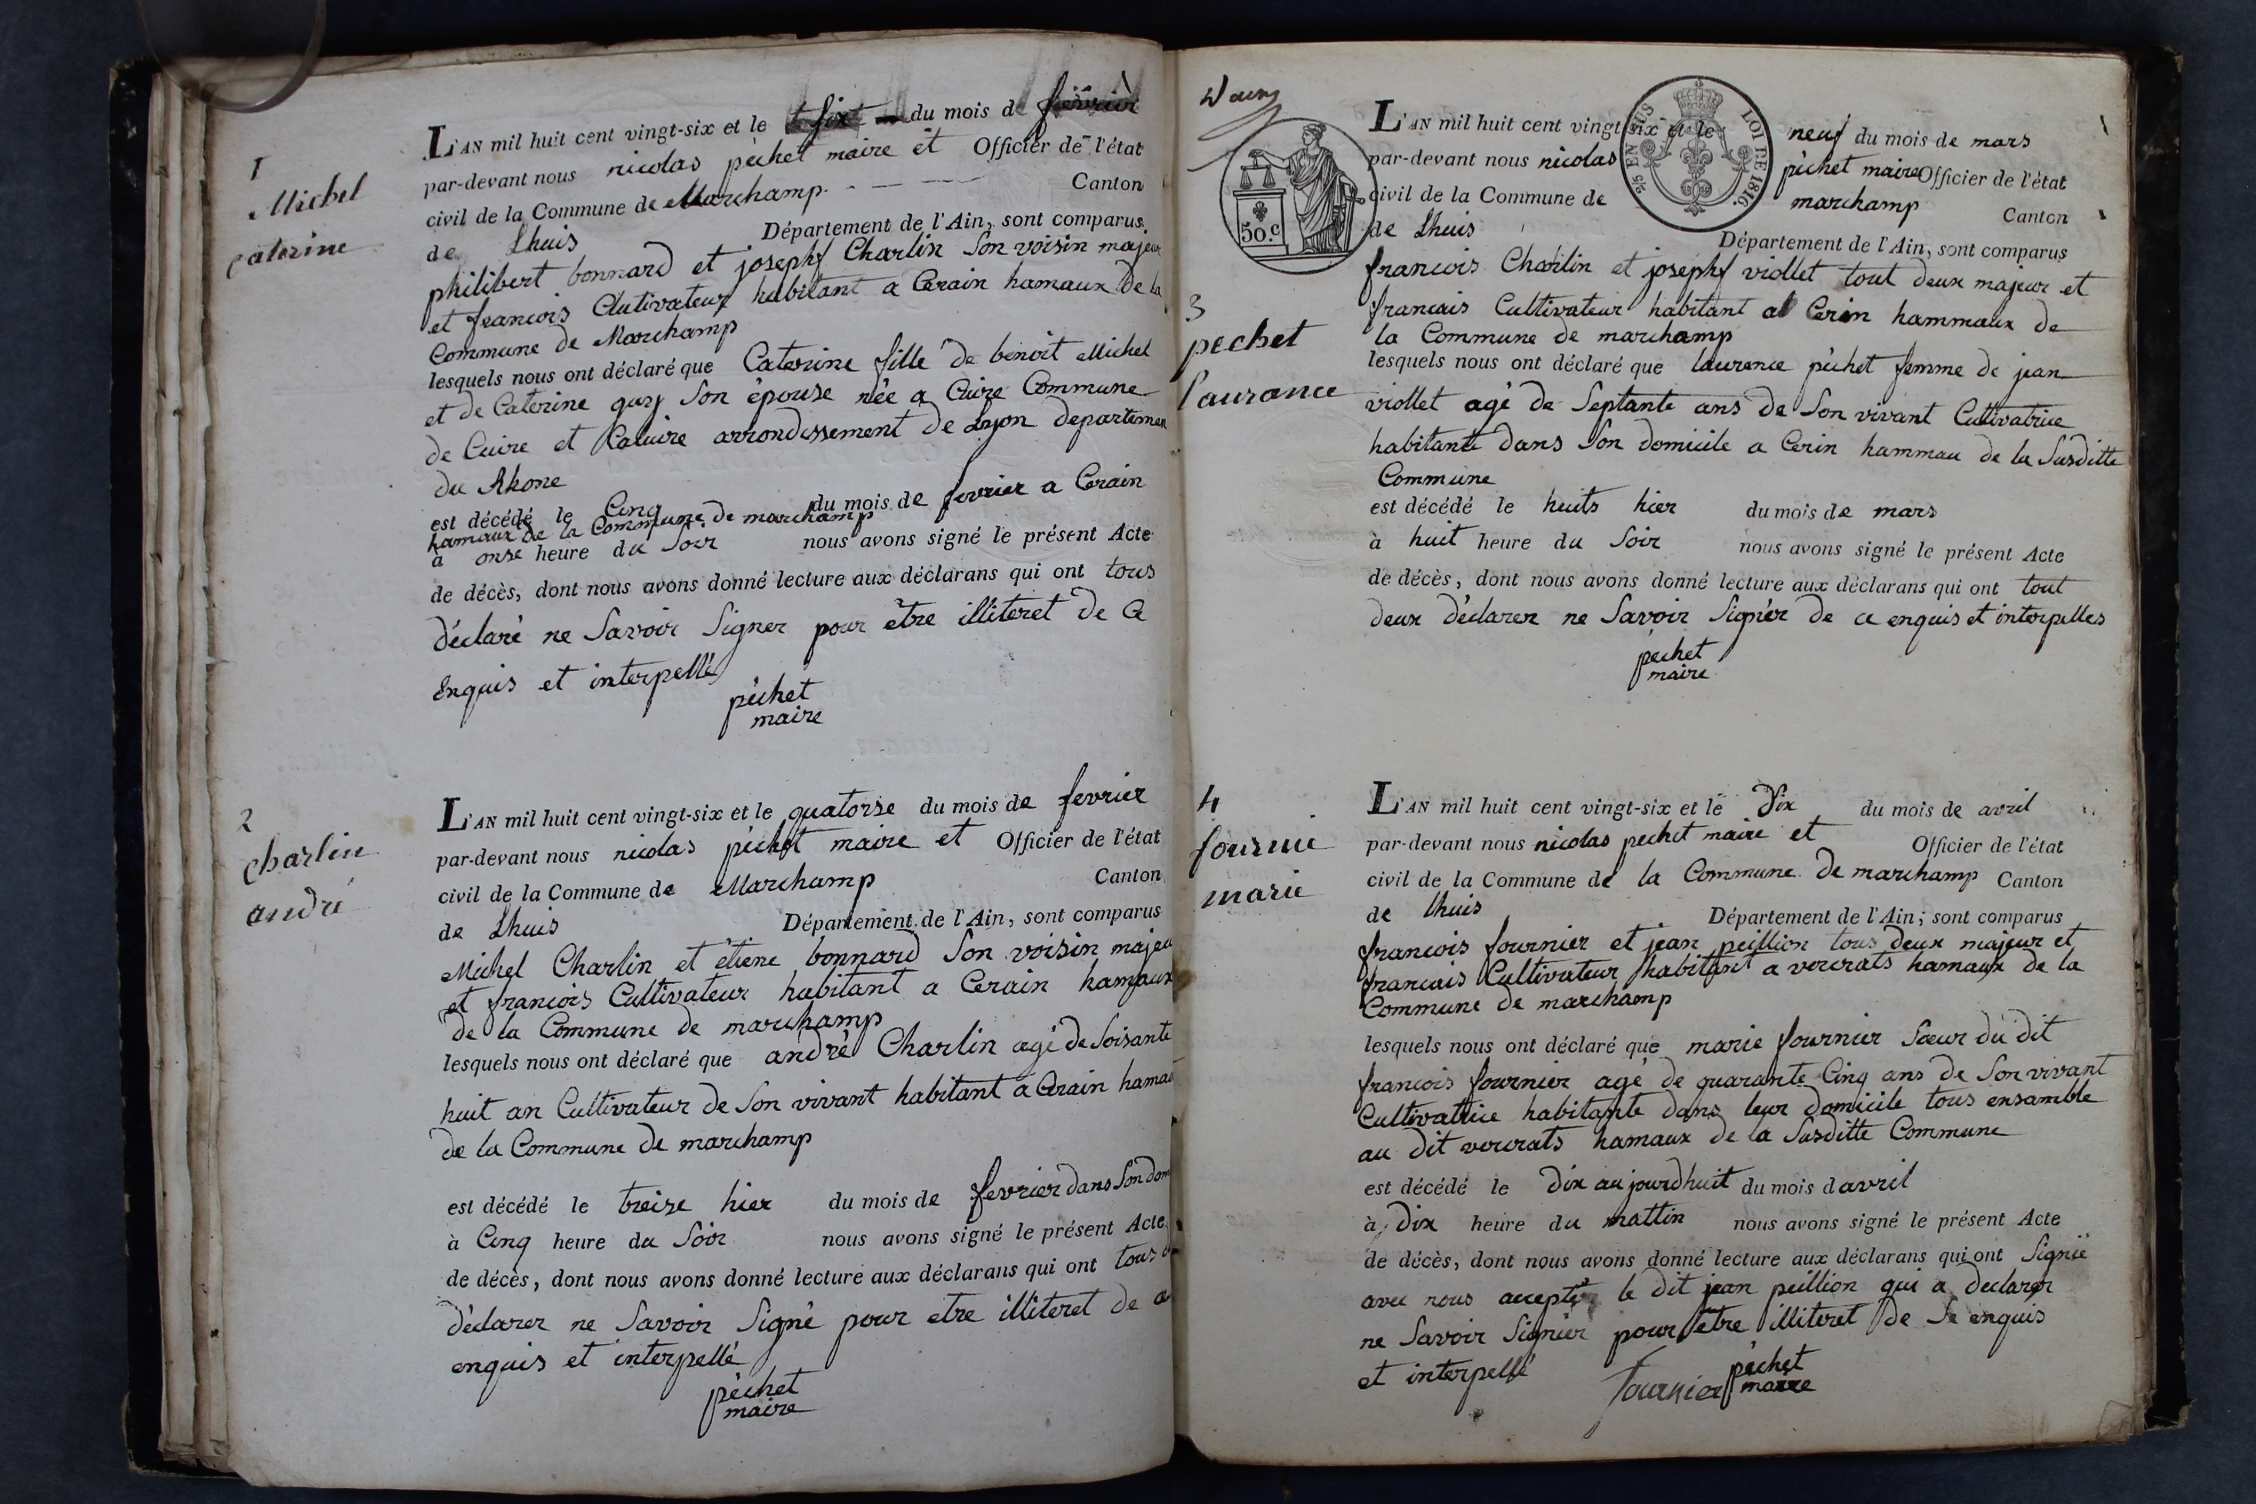 1
Michel
caterine
L'AN mil huit cent vingt-six et le six du mois de fevrier
par-devant nous nicolas pèchet maire et Officier de l'état
civil de la Commune de Marchamp Canton
de Lhuis Département de l'Ain, sont comparus
philibert bonnard et josephf Charlin Son voisin majeur
et francois Clutivateur habitant a Cerain hamaux de la
Commune de Marchamp
lesquels nous ont déclaré que Caterine fille de benoit Michel
et de Caterine guy Son épouse née a Cuire Commune
de Cuire et Caluire arrondissement de Lyon departemen
du Rhone
est décédé le Cinq du mois de fevrier a Cerain
hamaux de la Commune de marchamp
à onse heure du Soir nous avons signé le présent Acte
de décès, dont nous avons donné lecture aux déclarans qui ont tous
déclaré ne Savoir Signer pour être illiteret de Ce
Enquis et interpellé
pèchet
maire
2
charlin
andré
L'AN mil huit cent vingt-six et le quatorse du mois de fevrier
par-devant nous nicolas pèchet maire et Officier de l'état
civil de la Commune de Marchamp Canton
de Lhuis Département de l'Ain, sont comparus
Michel Charlin et étiene bonnard Son voisin majeu
et francois Cultivateur habitant a Cerain hamaux
de la Commune de marchamp
lesquels nous ont déclaré que andré Charlin agé de Soisante
huit an Cultivateur de Son vivant habitant a Cerain hamau
de la Commune de marchamp
est décédé le treize hier du mois de fevrier dans Son dom
à Cinq heure du Soir nous avons signé le présent Acte
de décès, dont nous avons donné lecture aux déclarans qui ont tous d
déclarer ne Savoir Signé pour etre illiteret de ce
enquis et interpellé
pèchet
maire
50.c
25 EN SUS LOI DE 1816.
3
pechet
laurance
L'AN mil huit cent vingt-six et le neuf du mois de mars
par-devant nous nicolas pèchet maire Officier de l'état
civil de la Commune de marchamp Canton
de Lhuis Département de l'Ain, sont comparus
francois Charlin et josephf viollet tout deux majeur et
francais Cultivateur habitant a Cerin hammaux de
la Commune de marchamp
lesquels nous ont déclaré que laurence pèchet femme de jean
viollet agé de Septante ans de Son vivant Cultivatrice
habitante dans Son domicile a Cerin hammau de la Susditte
Commune
est décédé le huits hier du mois de mars
à huit heure du Soir nous avons signé le présent Acte
de décès, dont nous avons donné lecture aux déclarans qui ont tout
deux déclarer ne Savoir Signér de ce enquis et interpelles
pechet
maire
4
fournie
marie
L'AN mil huit cent vingt-six et le Dix du mois de avril
par-devant nous nicolas pechet maire et Officier de l'état
civil de la Commune de la Commune de marchamp Canton
de lhuis Département de l'Ain, sont comparus
francois fournier et jean peillion tous deux majeur et
francais Cultivateur habitant a vercrats hamaux de la
Commune de marchamp
lesquels nous ont déclaré que marie fournier Sœur du dit
francois fournier agé de quarante Cinq ans de Son vivant
Cultivatrice habitante dans leur domicile tous ensamble
au dit vercrats hamaux de la Susditte Commune
est décédé le dix aujourdhuit du mois d avril
à dix heure du mattin nous avons signé le présent Acte
de décès, dont nous avons donné lecture aux déclarans qui ont Signié
avec nous accepté le dit jean peillion qui a declarer
ne Savoir Signier pour être illiteret de Se enquis
et interpellé
fournier pèchet
maire